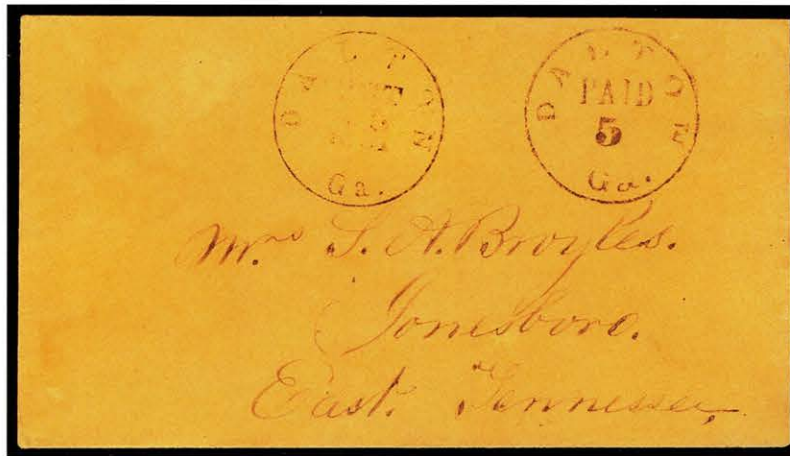 DALTON
Ga.
DALTON
PAID
5
Ga.
Mrs S. A. Broyles.
Jonesboro.
East. Tennessee,